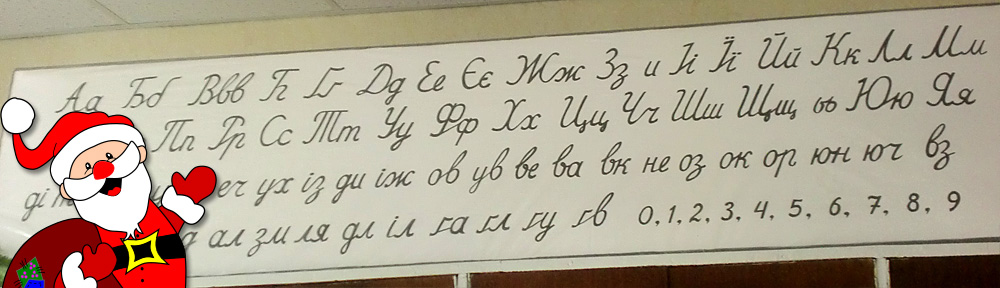 Аа Бб Ввв Гг Ґґ Дд Ее Єє Жж Зз и Іі Її Йй Кк Лл Мм
Пп Рр Сс Тт Уу Фф Хх Цц Чч Шш Щщ ьь Юю Яя
ді еч ух із ди іж ов ув ве ва вк не оз ок ор юн юч вз
ал зм ля дл іл га гл гу гв 0, 1, 2, 3, 4, 5, 6, 7, 8, 9